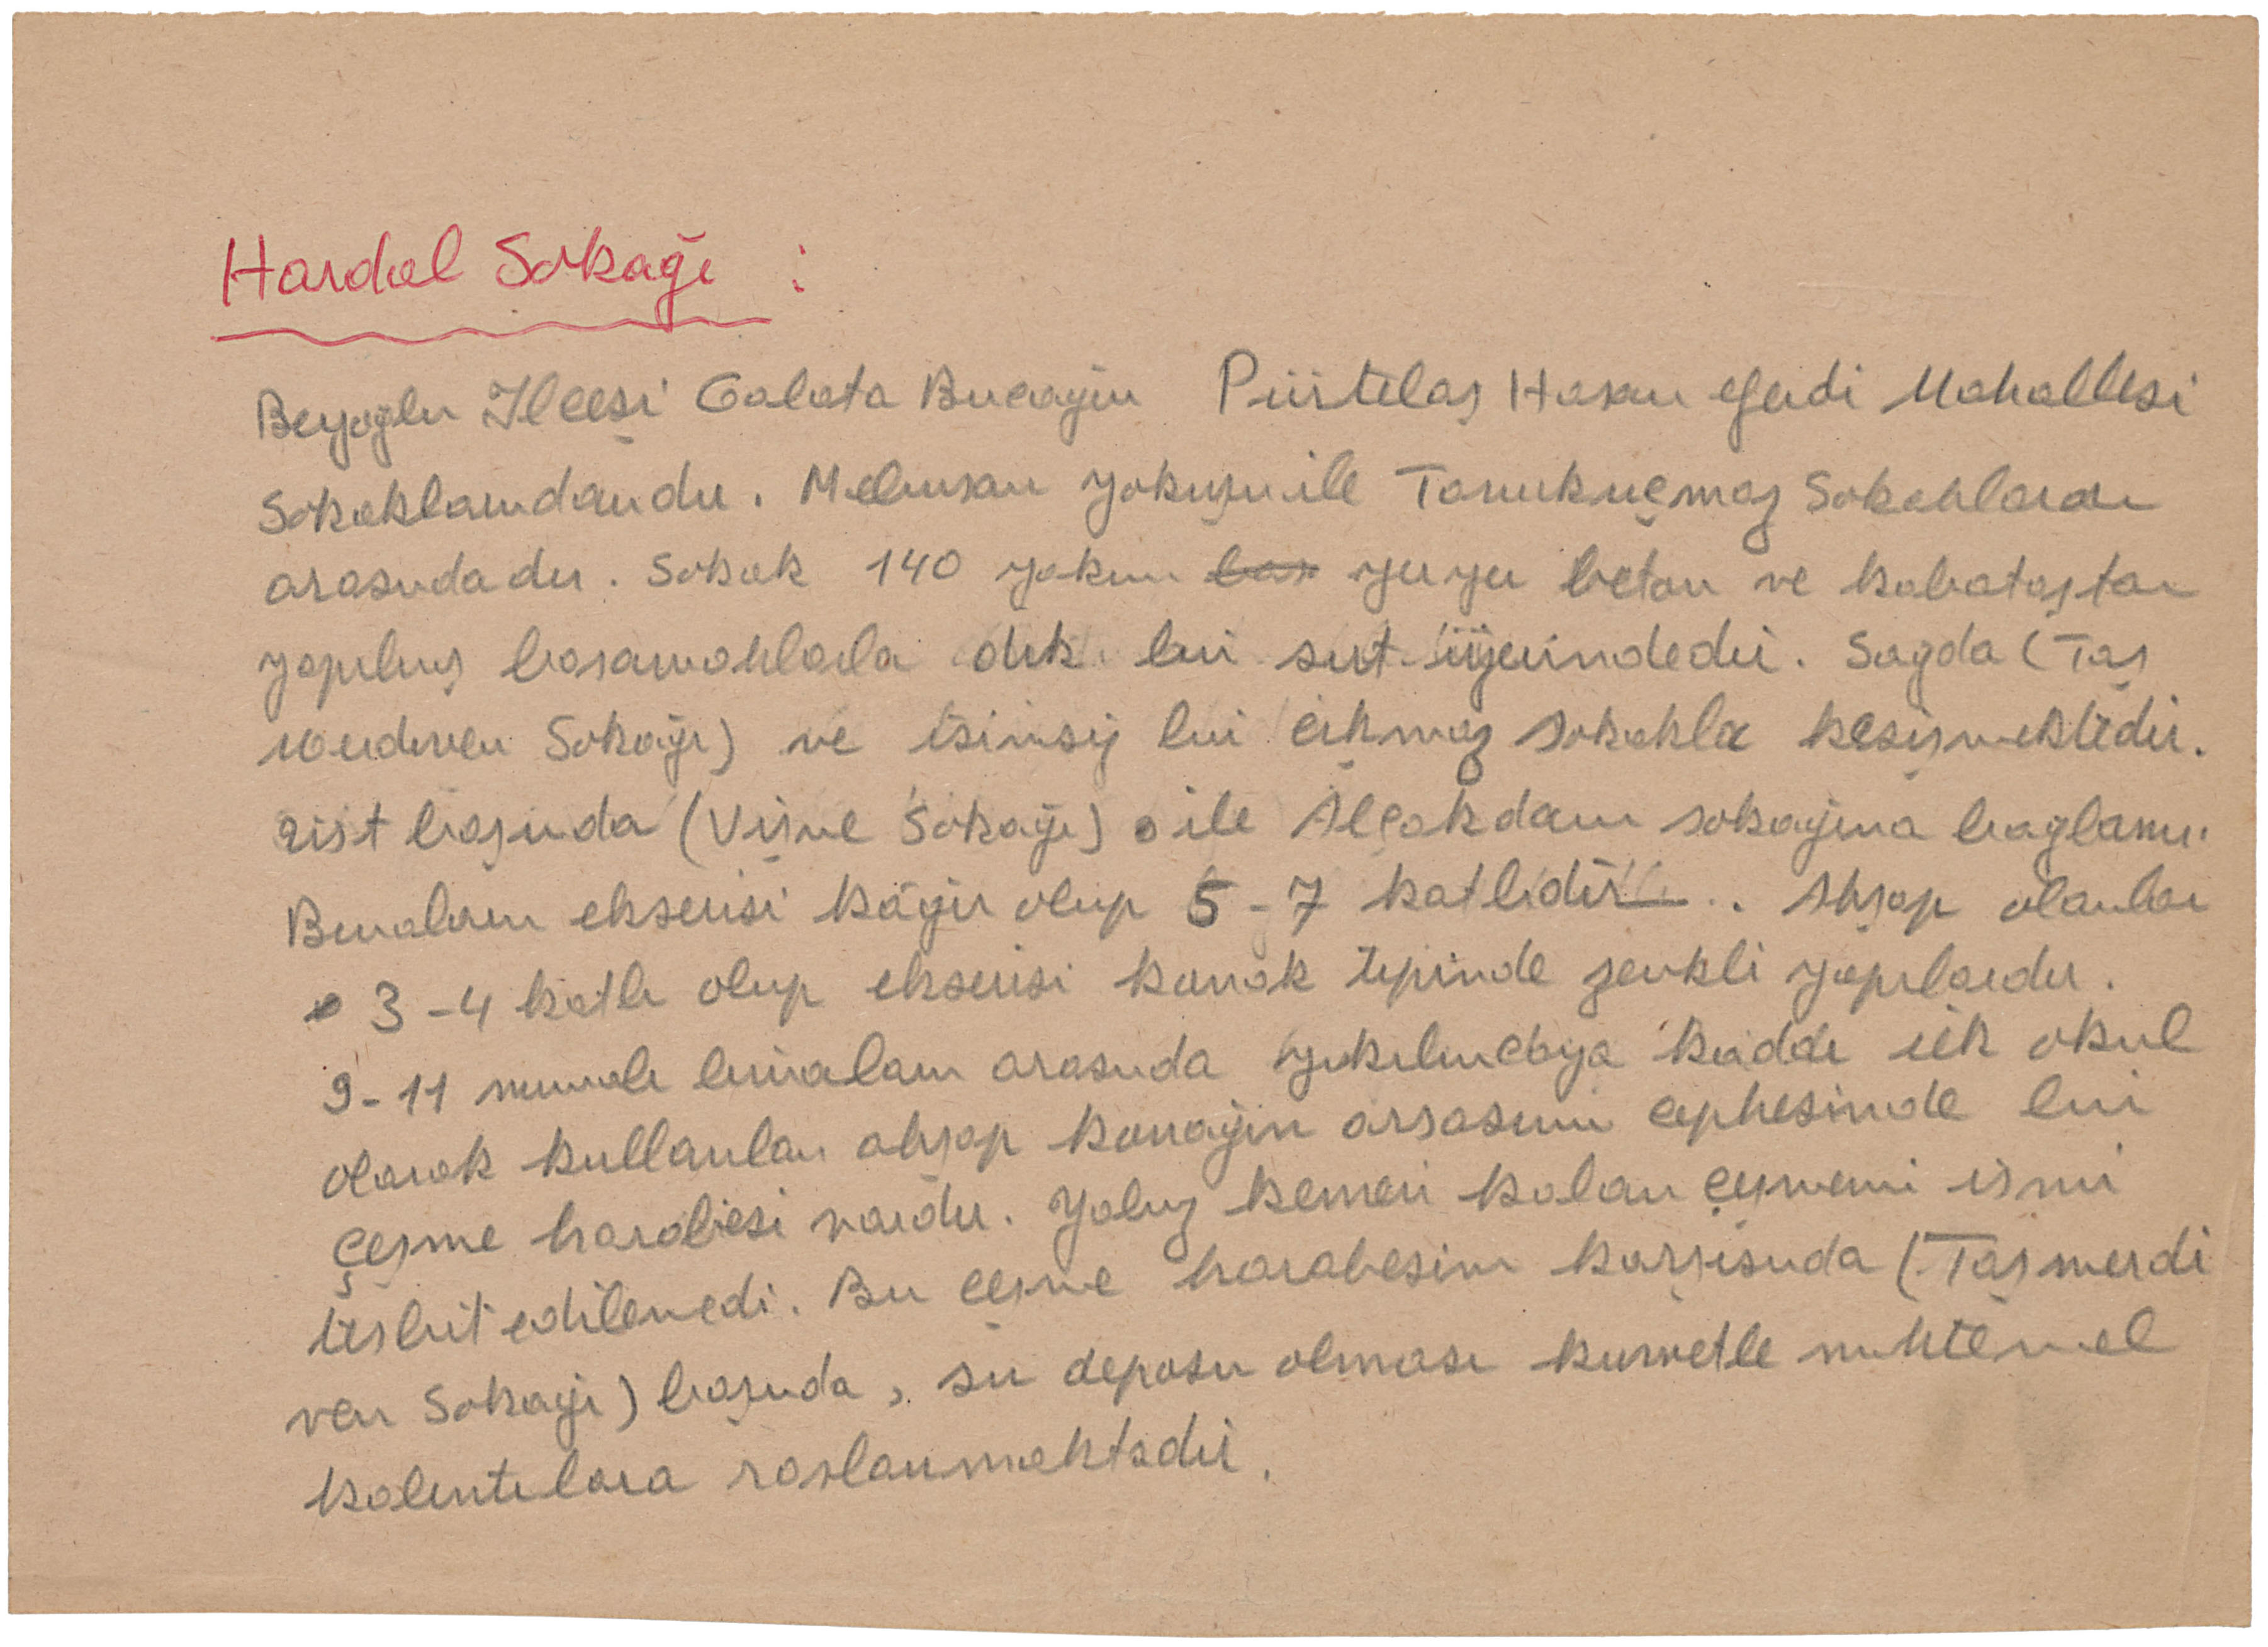 Hardal Sokağı :
Beyoğlu İlçesi Galata Bucağın Pürtelaş Hasan efendi Mahallesi
Sokaklarındandır. Mebusan yokuşu ile Tavukuçmaz Sokakları
arasındadır. Sokak 140 yakın bas yuyu beton ve kabataştan
yapılmış basamaklarla dik bir sırt üzerindedir. Sağda (Taş
merdiven Sokağı) ve isimsiz bir çıkmaz sokakla kesişmektedir.
üst başında (Vişne Sokağı) ile Alçakdam sokağına bağlanır.
Binaların ekserisi kâgir olup 5-7 katlıdır. Ahşap olanlar
3-4 katlı olup ekserisi konak tipinde zevkli yapılardır.
9-11 numaralı binaların arasında yıkılıncaya kadar ilk okul
olarak kullanılan ahşap konağın arsasının cephesinde bir
çeşme harabesi vardır. Yalnız kemeri kalan çeşmenin ismi
tesbit edilemedi. Bu çeşme harabesinin karşısında (Taşmerdi
ven Sokağı) başında, su deposu olması kuvvetle muhtemel
kalıntılara raslanmaktadır.